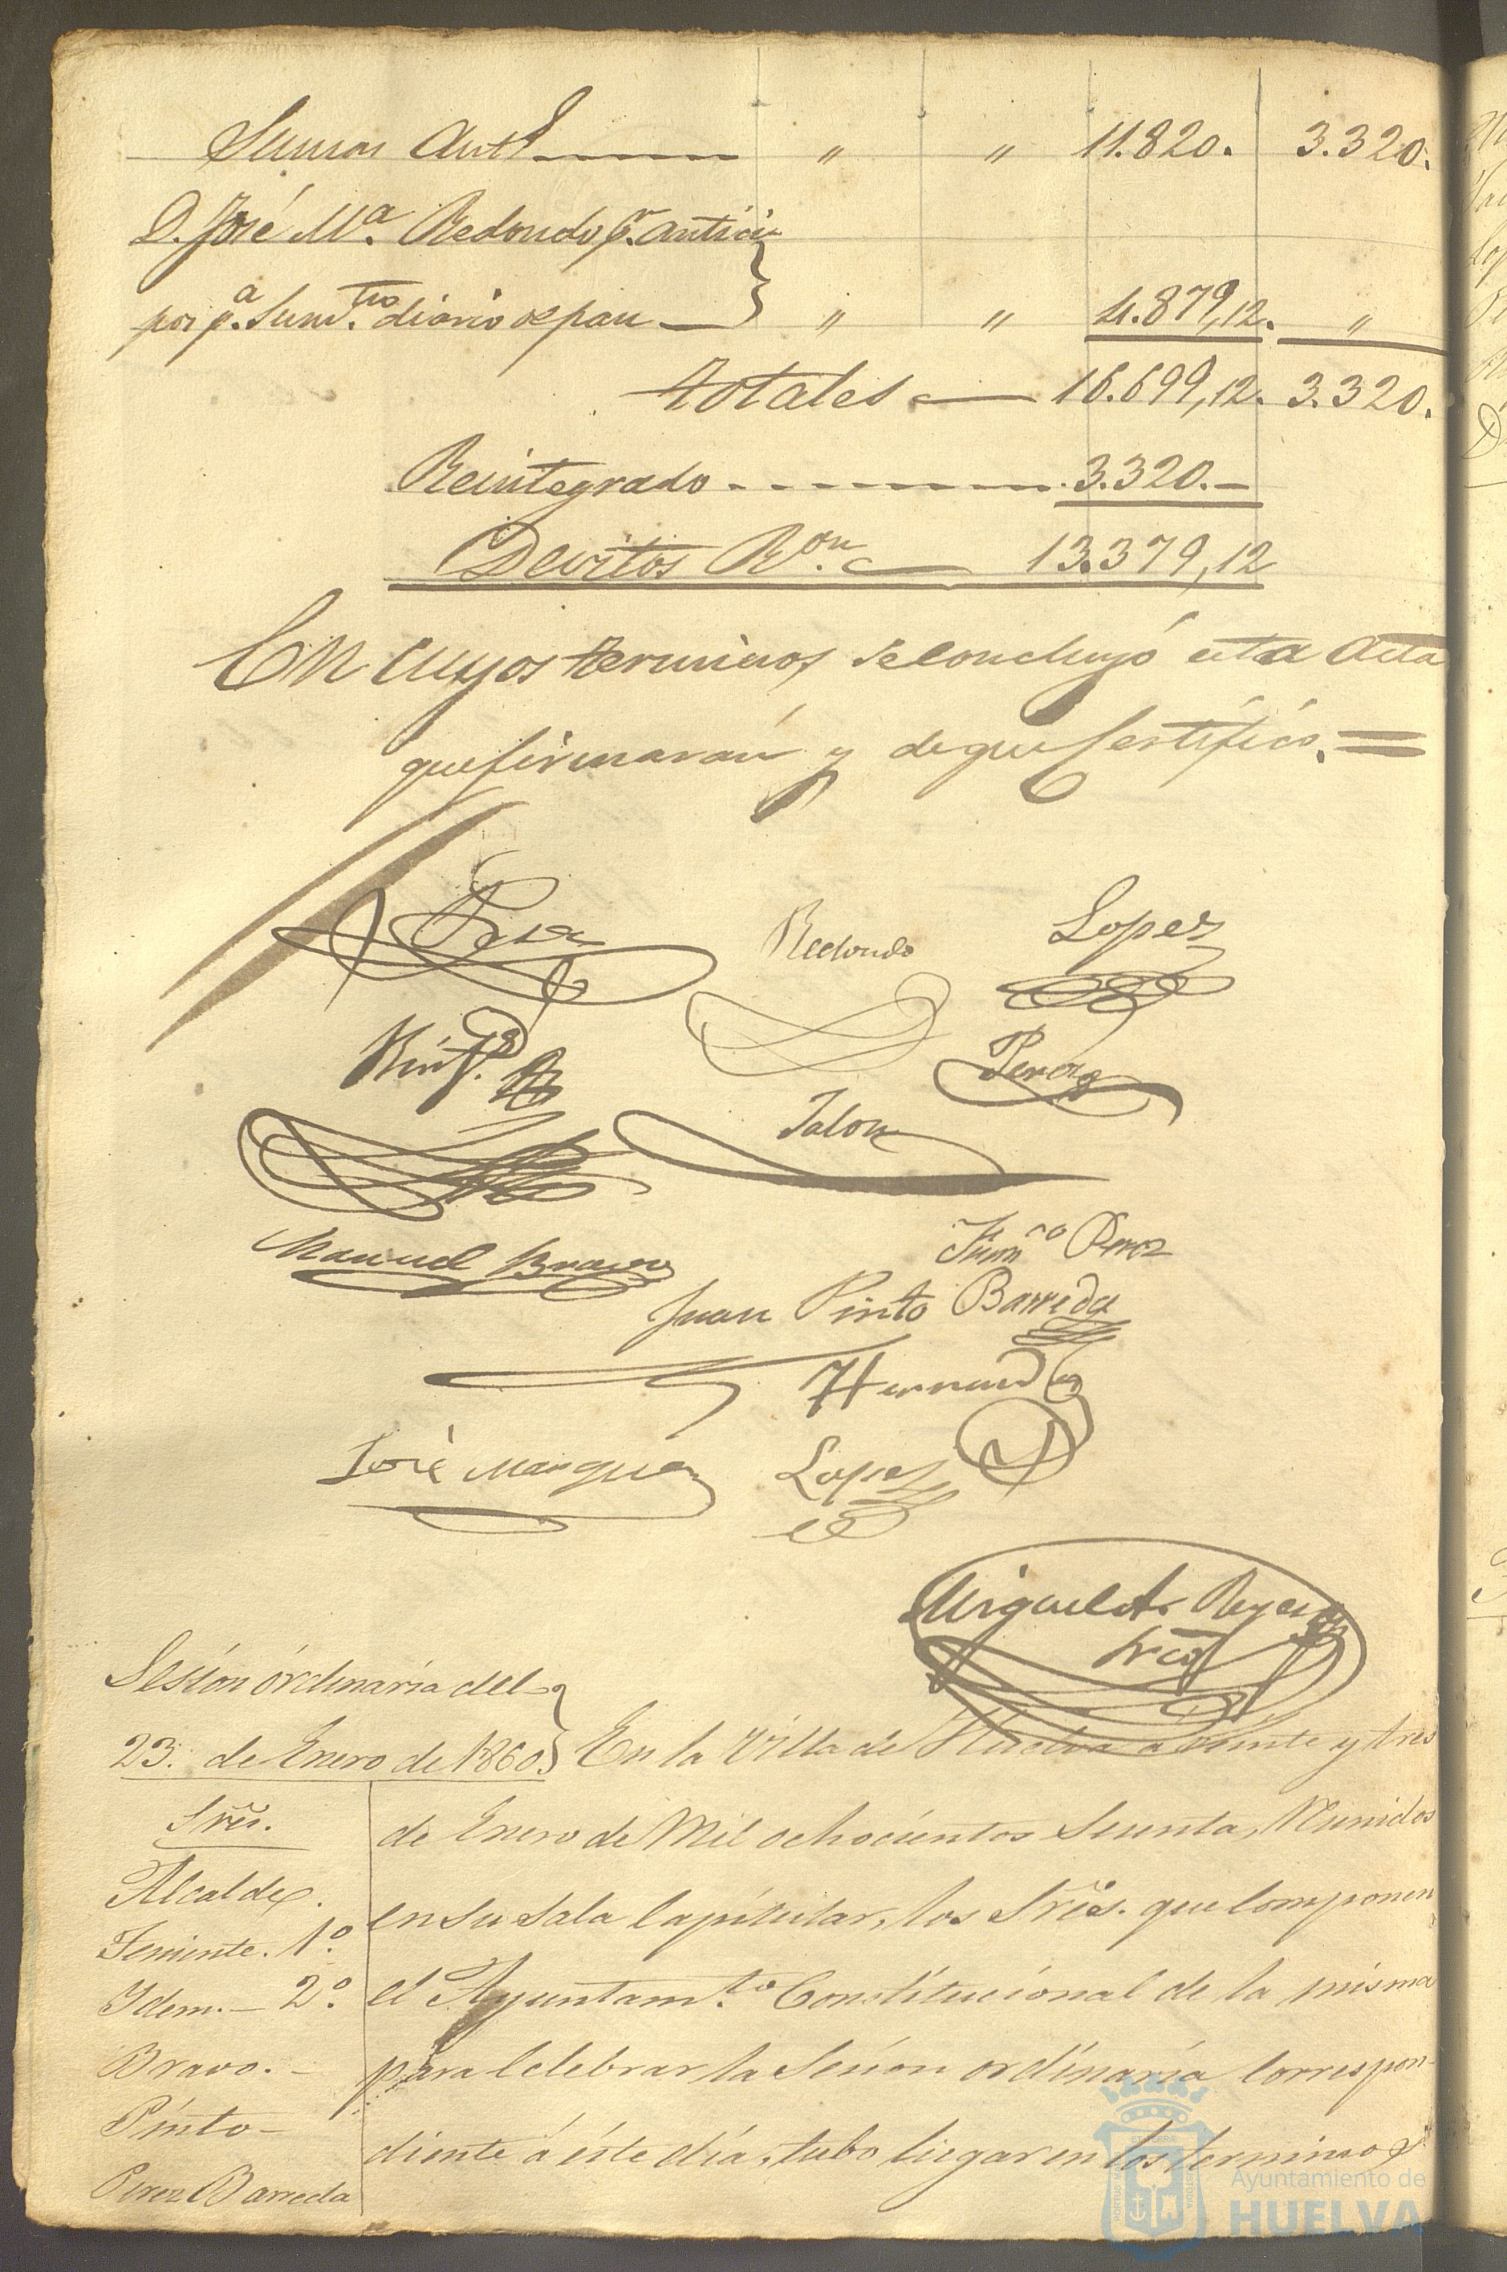 Sumas Antˢ ------- " " 11.820. 3.320.
D. José Mª. Redondo pʳ. antici
por pª. Sumᵗʳᵒ. diario de pan — " " 4.879,12. "
Totales — 16.699,12. 3.320.
Reintegrado ------- 3.320.—
Devitos Rᵒⁿ. — 13.379,12
En cuyos terminos, se concluyó esta Acta
que firmarán y de que Certifico. =
Redondo
Lopez
Perez
Jalon
Manuel Bravo
Perez
Juan Pinto Barreda
Hernandez
José Marquez
Lopez
Miguel A. Reyes
Srio
Sesión órdinaria del
23. de Enero de 1860. } En la Villa de Huelva a veinte y tres
Sres.
de Enero de Mil ochocientos Sesenta, Reunidos
Alcalde.
en su Sala Capitular, los Sres. que Componen
Teniente. 1º.
el Ayuntamᵗᵒ. Constitucional de la misma
Idem. — 2º.
para Celebrar la Sesion ordinaria Correspon-
Bravo. —
diente á éste dia, tubo lugar en los terminos
Pinto —
Perez Barreda
Ayuntamiento de
HUELVA